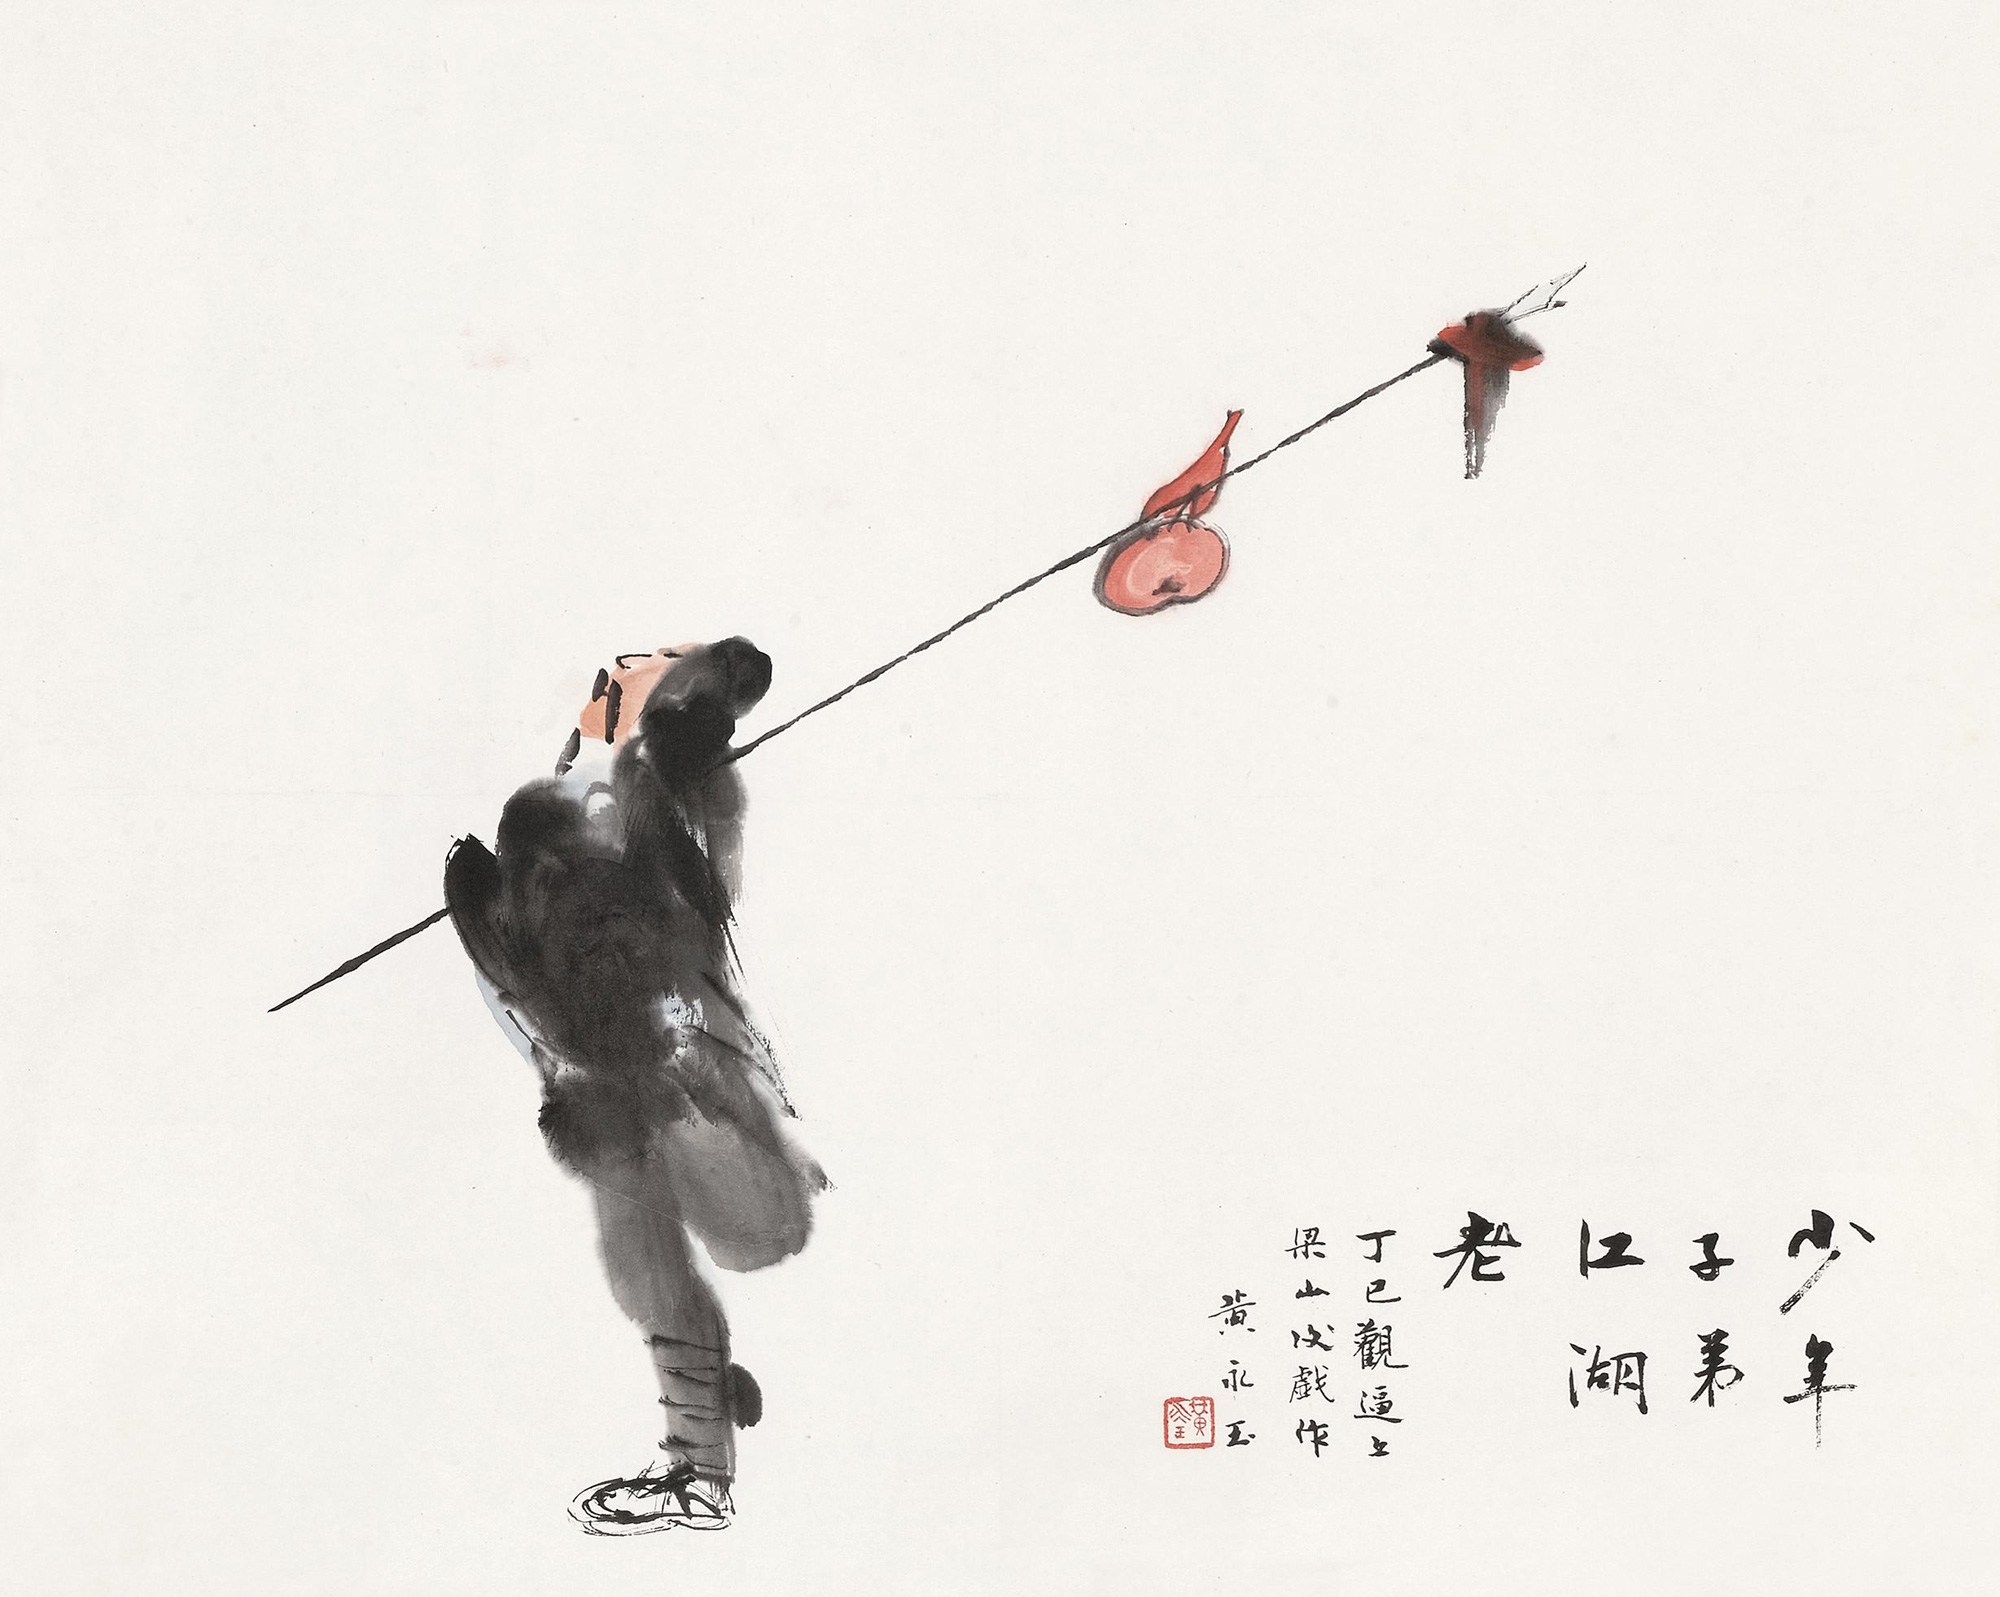 少年
子弟
江湖
老
丁巳觀逼上
梁山後戲作
黄永玉